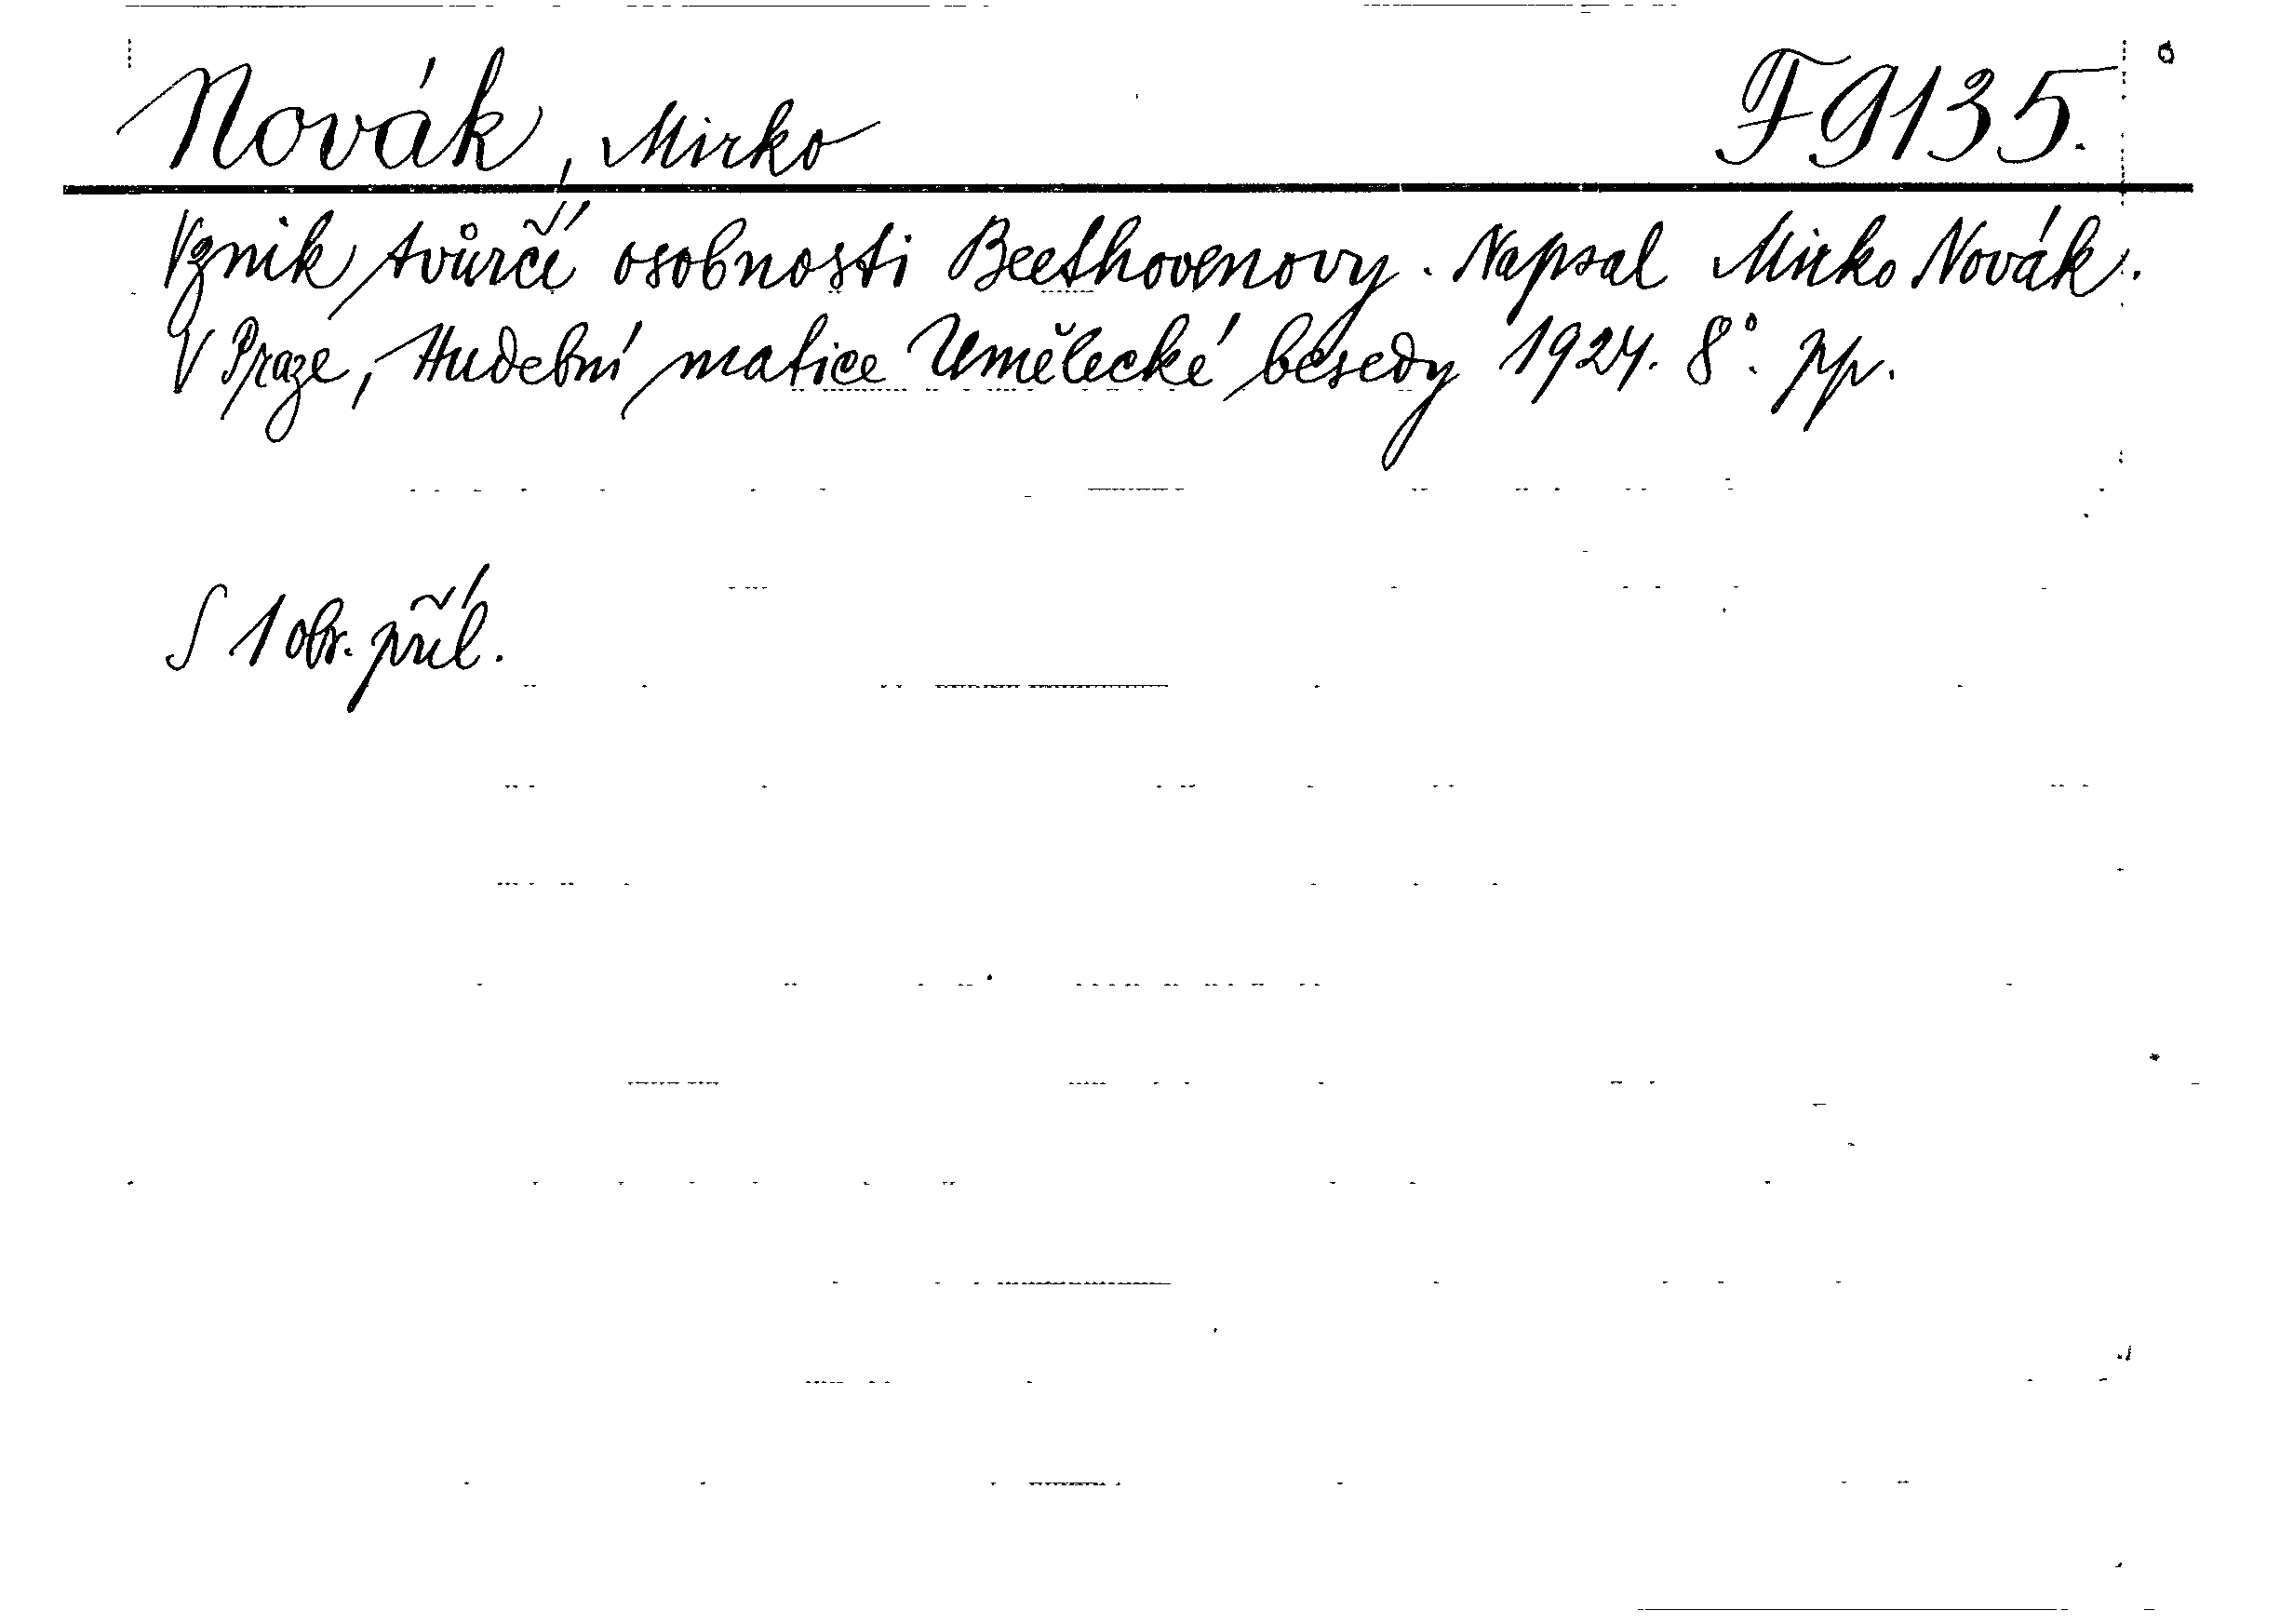 Novák, Mirko F 9135.
Vznik tvůrčí osobnosti Beethovenovy. Napsal Mirko Novák.
V Praze, Hudební matice Umělecké besedy 1924. 8°. pp.
S 1 obr. příl.